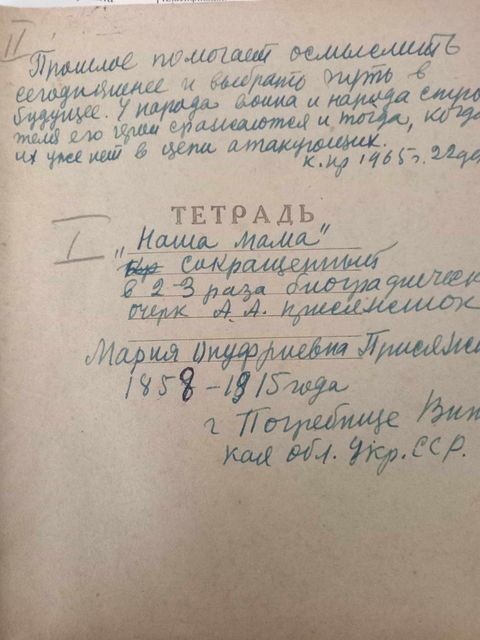 II
Прошлое помогает осмыслить
сегодняшнее и выбрать путь в
будущее. У народа воина и народа строи
теля его герои сражаются и тогда, когда
их уже нет в цепи атакующих.
к. пр 1965 г. 22
ТЕТРАДЬ
I
„Наша мама"
сокращенный
в 2-3 раза биографическ
очерк А. А. Присянсток
Мария Онуфриевна Присяж
1858 – 1915 года
г Погребище Вин
кая обл. Укр. ССР.